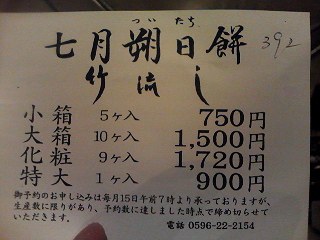 ついたち
七月朔日餅
392
竹流し
小箱 5ヶ入 750円
大箱 10ヶ入 1,500円
化粧 9ヶ入 1,720円
特大 1ヶ入 900円
御予約のお申し込みは毎月15日午前7時より承っておりますが、
生産数に限りがあり、予約数に達しました時点で締め切らせて
いただきます。
電話 0596-22-2154